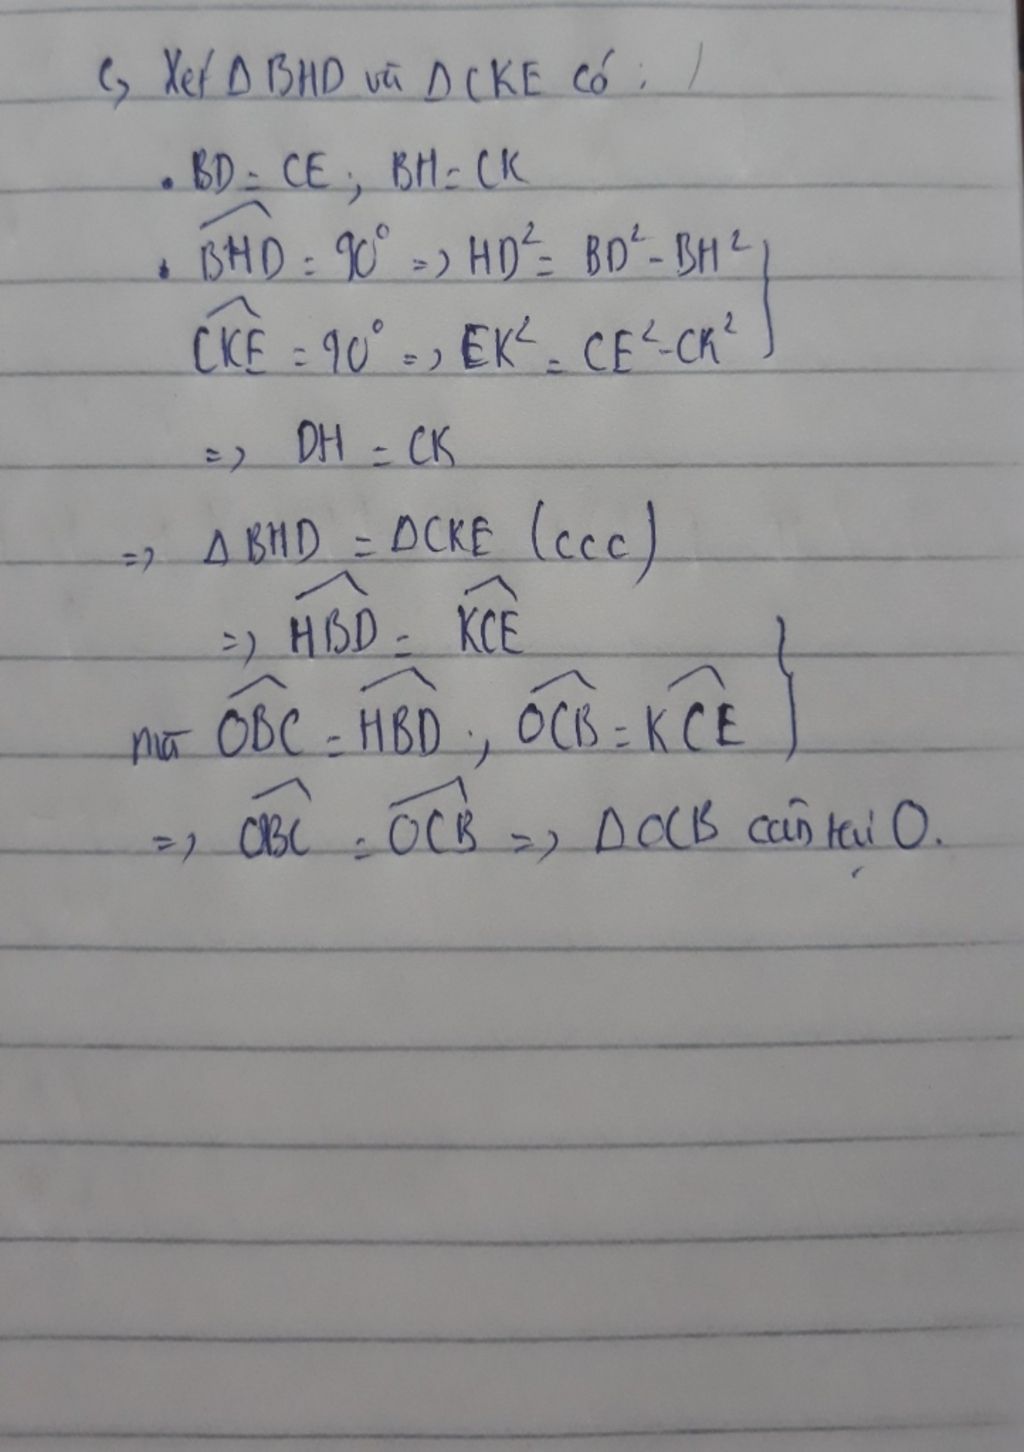 c, Xét ΔBHD và ΔCKE có:
. BD = CE; BH = CK
. \widehat{BHD} = 90° => HD² = BD² - BH² }
\widehat{CKE} = 90° => EK² = CE² - CK²
=> DH = CK
=> ΔBHD = ΔCKE (ccc)
=> \widehat{HBD} = \widehat{KCE}
mà \widehat{OBC} = \widehat{HBD}; \widehat{OCB} = \widehat{KCE} }
=> \widehat{OBC} = \widehat{OCB} => ΔOCB cân tại O.